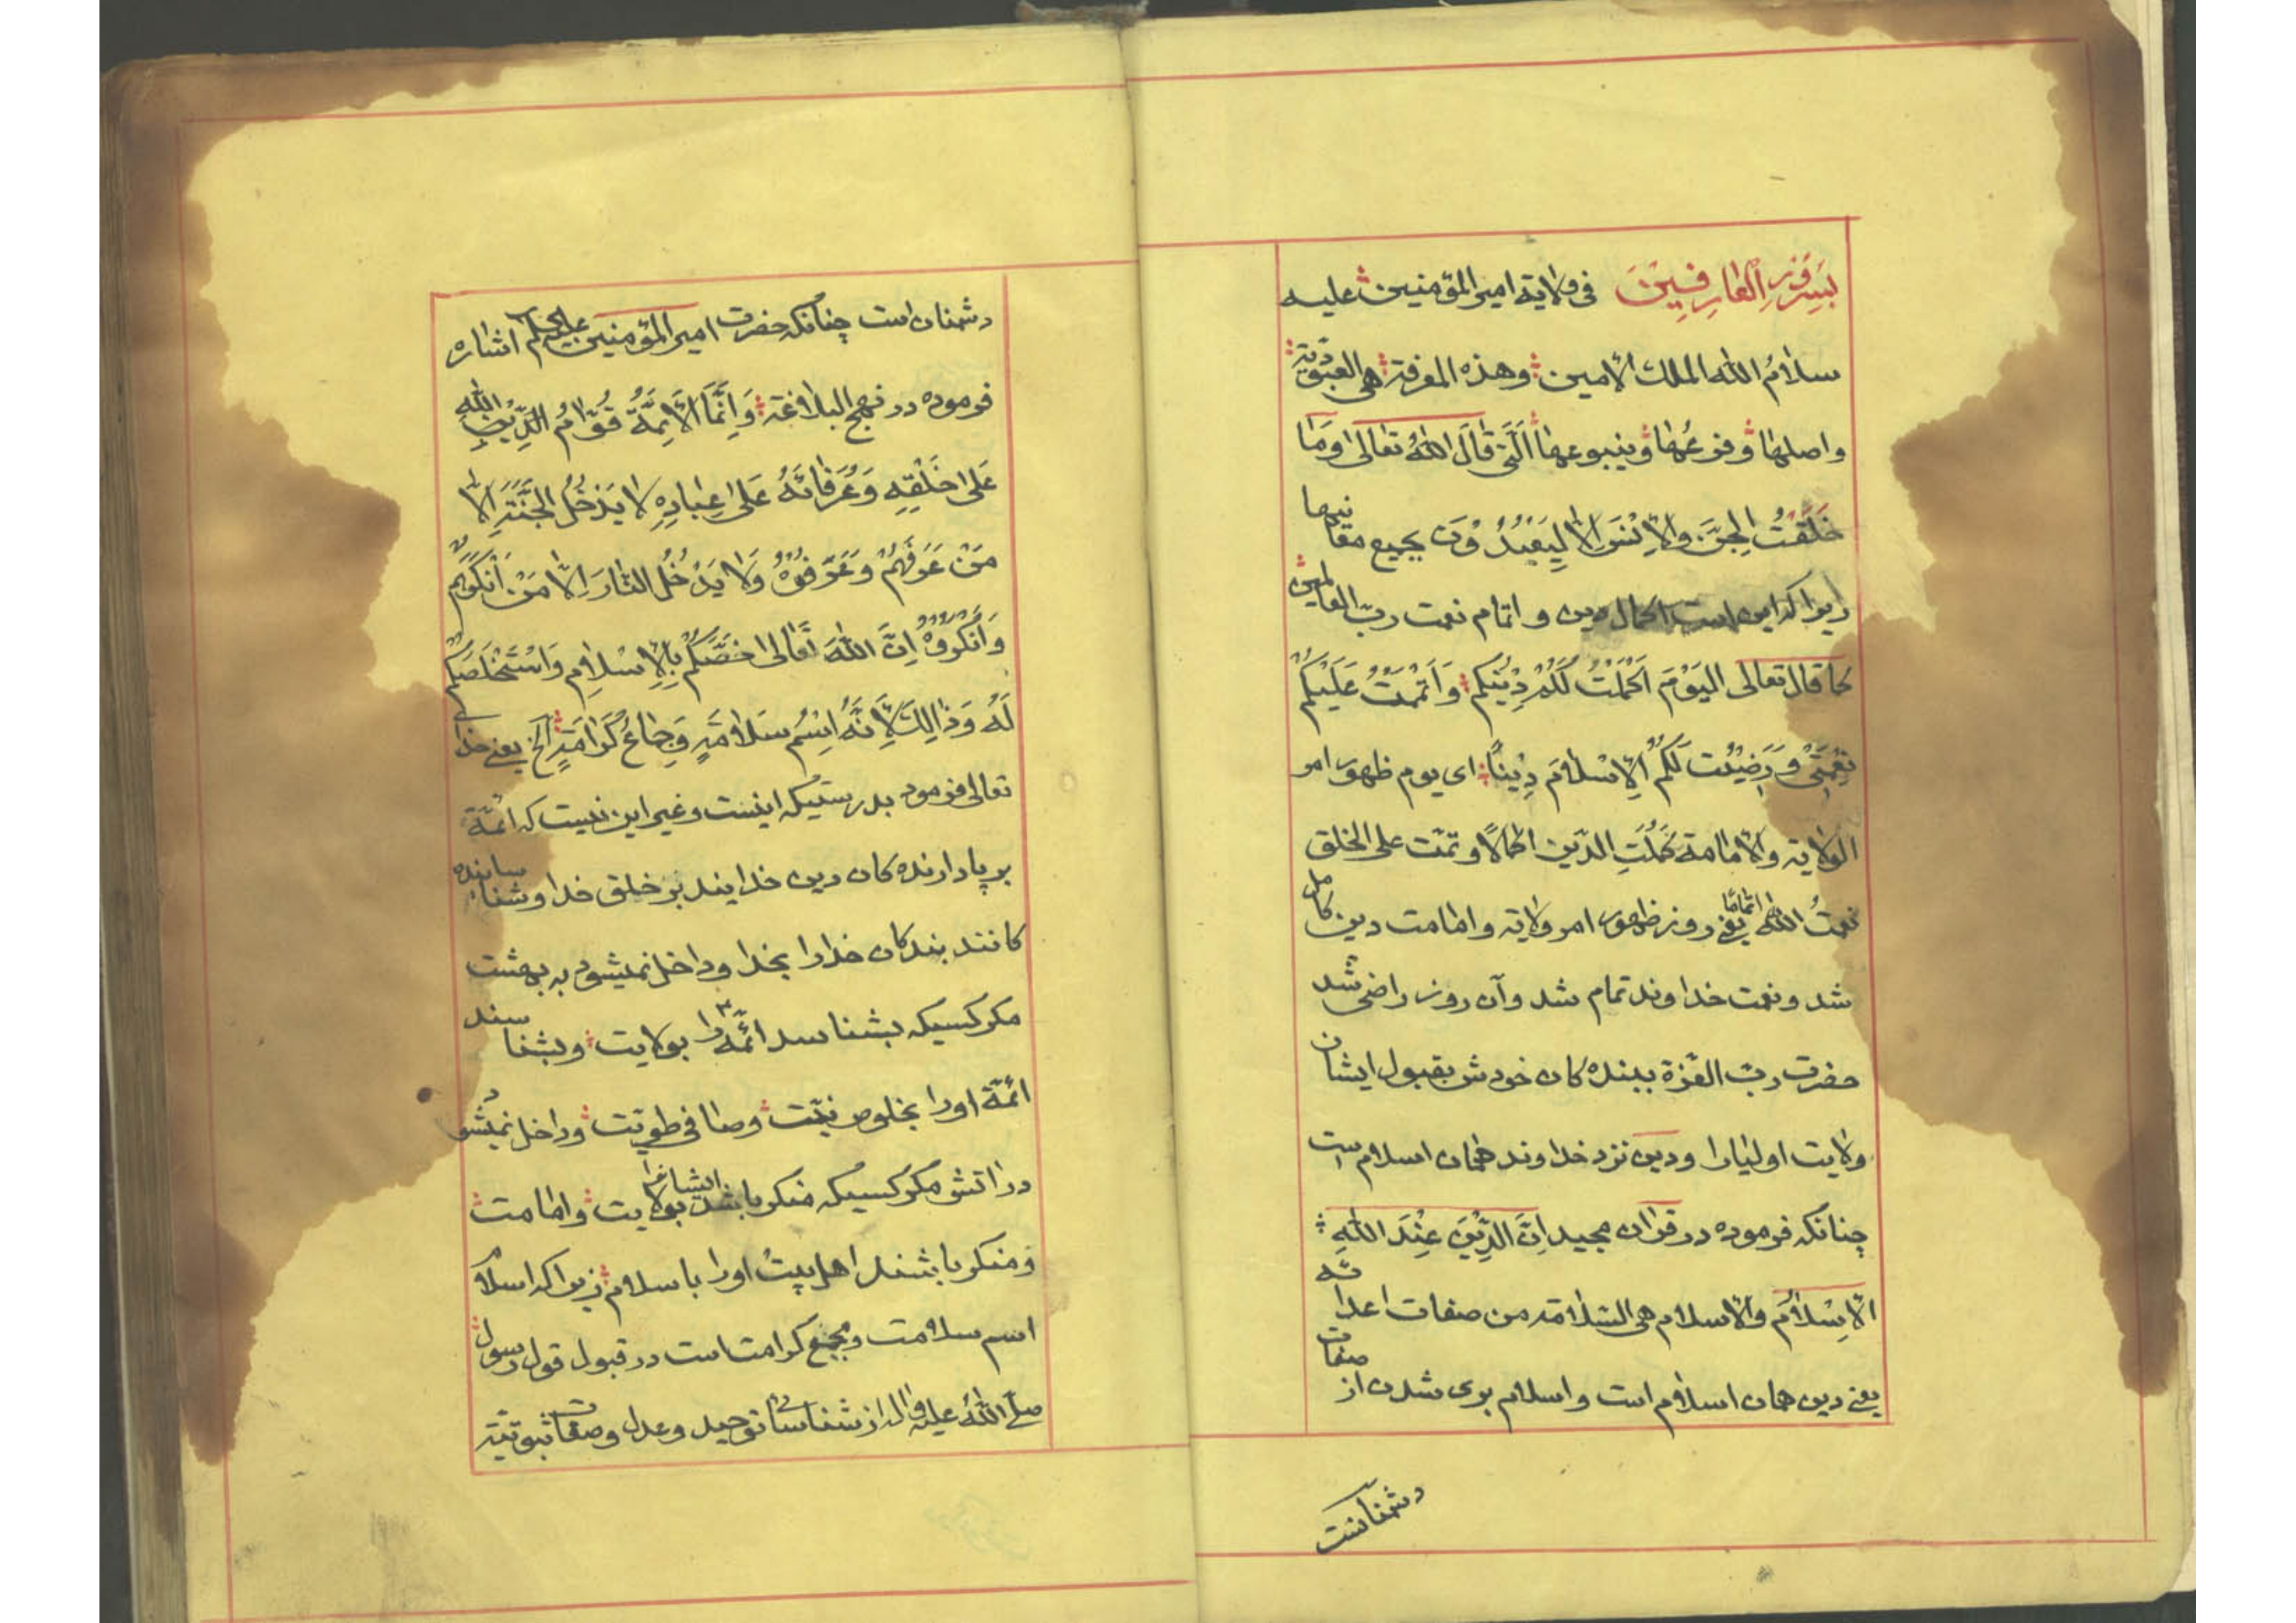 العارفين في ولاية امير المؤمنين عليه
سلام الله الملك الامين وهذه المعرفة هي العبودية
واصلها وفرعها وينبوعها الّتي قَالَ اللهُ تعالى وَمَا
خَلَقْتُ الْجِنَّ وَالْاِنْسَ اِلَّا لِيَعْبُدُوْنِ بجميع معانيها
زيرا كه اين است اكمال دين و اتمام نعمت ربّ العالمين
كما قال تعالى اَلْيَوْمَ اَكْمَلْتُ لَكُمْ دِيْنَكُمْ وَاَتْمَمْتُ عَلَيْكُمْ
نِعْمَتِيْ وَرَضِيْتُ لَكُمُ الْاِسْلَامَ دِيْنًا اى يوم ظهور امر
الولاية والامامة كَمُلَتِ الدّين اكمالًا وتمّت على الخلق
نعمتُ الله اتمامًا يعنى روز ظهور امر ولاية وامامت دين كامل
شد ونعمت خداوند تمام شد وآن روز راضى شد
حضرت ربّ العزّة ببنده كان خودش بقبول ايشان
ولايت اوليا را ودين نزد خداوند همان اسلام است
چنانكه فرموده در قران مجيد اِنَّ الدِّيْنَ عِنْدَ اللهِ
الْاِسْلَامُ والاسلام هى السّلامة من صفات اعدائه
يعنى دين همان اسلام است واسلام برى شدن از صفات
دشمنانست
دشمنان است چنانكه حضرت امير المؤمنين اشاره
فرموده در نهج البلاغة وَاِنَّمَا الْاَئِمَّةُ قُوَّامُ الله
عَلى خَلْقِهِ وَعُرَفَائُهُ عَلى عِبَادِهِ لَا يَدْخُلُ الْجَنَّةَ اِلَّا
مَنْ عَرَفَهُمْ وَعَرَفُوْهُ وَلَا يَدْخُلُ النَّارَ اِلَّا مَنْ اَنْكَرَهُمْ
وَاَنْكَرُوْهُ اِنَّ اللهَ تَعَالى خَصَّكُمْ بِالْاِسْلَامِ وَاسْتَخْلَصَكُمْ
لَهُ وَذَالِكَ لِاَنَّهُ اِسْمُ سَلَامَةٍ وَجِمَاعُ كَرَامَةٍ الخ يعنى خداى
تعالى فرمود بدرستيكه اينست وغير اين نيست كه ائمّة
بر پا دارنده كان دين خدايند بر خلق خدا وشناساننده
كانند بندكان خدا را بخدا وداخل نميشود به بهشت
مكر كسيكه بشناسد ائمّه را بولايت وبشناسند
ائمّة او را بخلوص نيّت وصافى طويّت وداخل نميشود
در اتش مكر كسيكه منكر باشد ايشانرا بولايت وامامت
ومنكر باشند اهل بيت او را باسلام زيرا كه اسلام
اسم سلامت ومجمع كرامت است در قبول قول رسول
صلّى اللهُ عليه واله از شناسائى توحيد وعدل وصفات ثبوتيّة